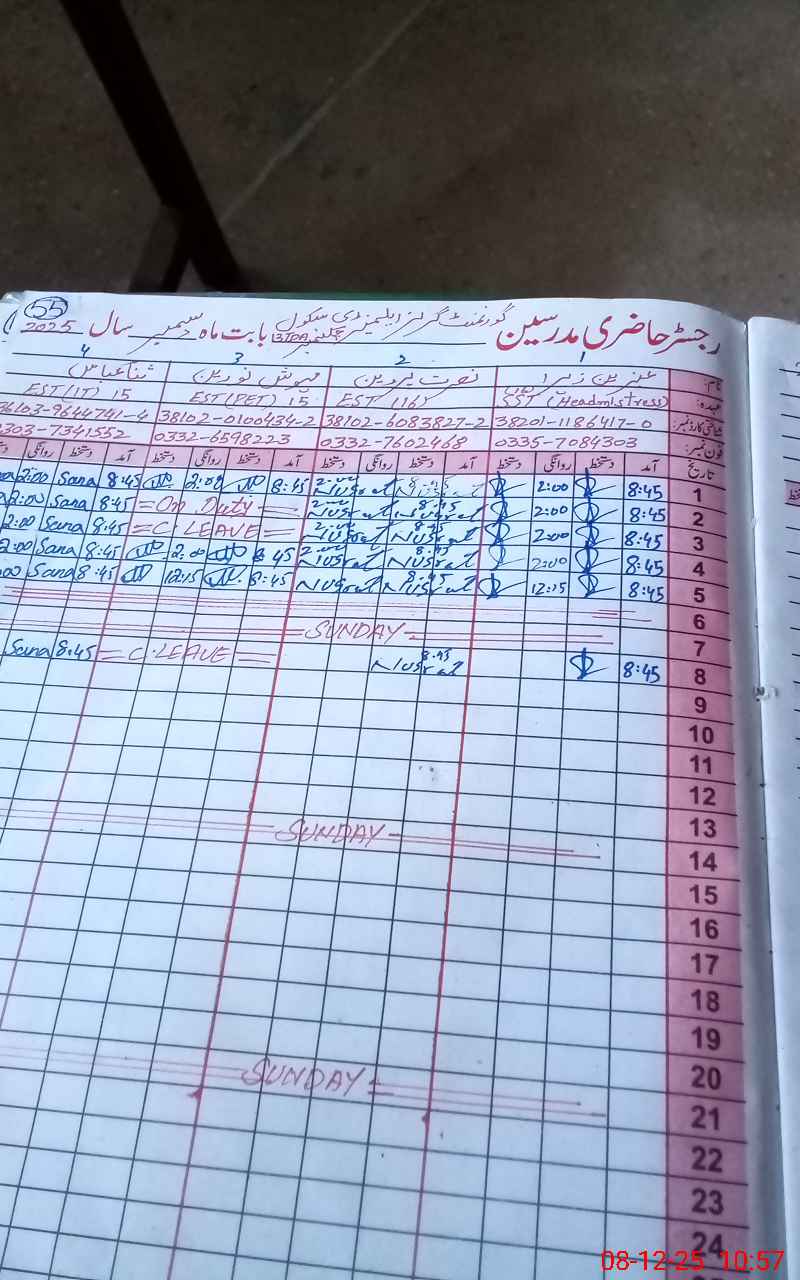 55
رجسٹر حاضری مدرسین گورنمنٹ گرلز ایلیمنٹری سکول چک نمبر بابت ماہ دسمبر سال 2025
1 2 3 4
نام: عنبرین زہرا نصرت پروین مہوش نورین ثنا عباس
عہدہ: SST (Headmistress) EST (16) EST (PET) 15 EST (IT) 15
شناختی کارڈ نمبر: 38201-1186417-0 38102-6083827-2 38102-0100434-2 36103-9644741-4
فون نمبر: 0335-7084303 0332-7602468 0332-6598223 0303-7341552
تاریخ آمد دستخط روانگی دستخط آمد دستخط روانگی دستخط آمد دستخط روانگی دستخط آمد دستخط روانگی
1 8:45 2:00 8:45 Nusrat 2:00 Nusrat 8:45 2:00 8:45 Sana 2:00
2 8:45 2:00 8:45 Nusrat 2:00 Nusrat = On Duty = 8:45 Sana 2:00
3 8:45 2:00 8:45 Nusrat 2:00 Nusrat = C.LEAVE = 8:45 Sana 2:00
4 8:45 2:00 8:45 Nusrat 2:00 Nusrat 8:45 2:00 8:45 Sana 2:00
5 8:45 12:15 8:45 Nusrat Nusrat 8:45 12:15 8:45 Sana
6
7 SUNDAY
8 8:45 8:45 Nusrat = C.LEAVE = 8:45 Sana
9
10
11
12
13
14 SUNDAY
15
16
17
18
19
20
21 SUNDAY
22
23
24
08-12-25 10:57